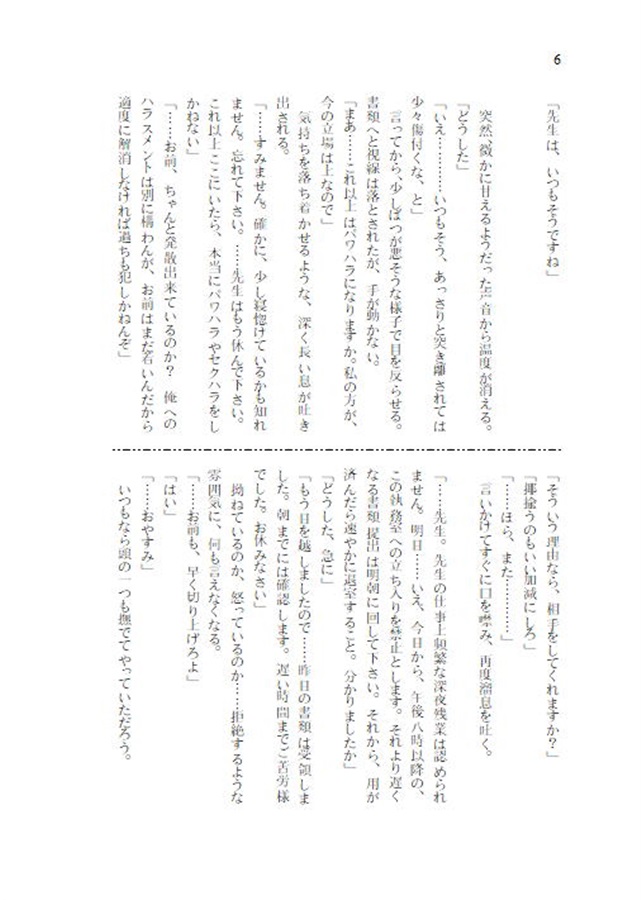 6
「先生は、いつもそうですね」
突然、微かに甘えるようだった声音から温度が消える。
「どうした」
「いえ…………いつもそう、あっさりと突き離されては
少々傷付くな、と」
言ってから、少しばつが悪そうな様子で目を反らせる。
書類へと視線は落とされたが、手が動かない。
「まあ……これ以上はパワハラになりますか。私の方が、
今の立場は上なので」
気持ちを落ち着かせるような、深く長い息が吐き
出される。
「……すみません。確かに、少し寝惚けているかも知れ
ません。忘れて下さい。……先生はもう休んで下さい。
これ以上ここにいたら、本当にパワハラやセクハラをし
かねない」
「……お前、ちゃんと発散出来ているのか？　俺への
ハラスメントは別に構わんが、お前はまだ若いんだから
適度に解消しなければ過ちも犯しかねんぞ」
「そういう理由なら、相手をしてくれますか？」
「揶揄うのもいい加減にしろ」
「……ほら、また…………」
言いかけてすぐに口を噤み、再度溜息を吐く。
「……先生。先生の仕事上頻繁な深夜残業は認められ
ません。明日……いえ、今日から、午後八時以降の、
この執務室への立ち入りを禁止とします。それより遅く
なる書類提出は明朝に回して下さい。それから、用が
済んだら速やかに退室すること。分かりましたか」
「どうした、急に」
「もう日を越しましたので……昨日の書類は受領しま
した。朝までには確認します。遅い時間までご苦労様
でした。お休みなさい」
拗ねているのか、怒っているのか……拒絶するような
雰囲気に、何も言えなくなる。
「……お前も、早く切り上げろよ」
「はい」
「……おやすみ」
いつもなら頭の一つも撫でてやっていただろう。